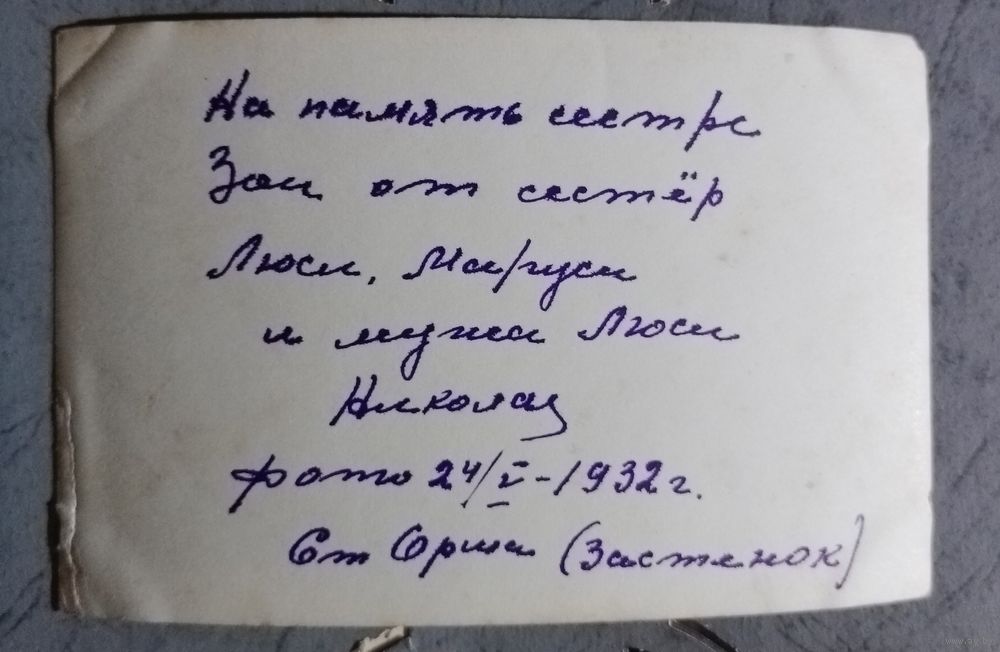 На память сестре
Зои от сестёр
Люси, Маруси
и мужа Люси
Николая
фото 24/V-1932 г.
Ст Орша (Застенок)